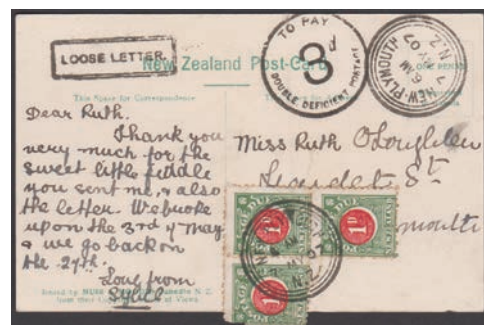 LOOSE LETTER
New Zealand Post-Card
TO PAY
3d
DOUBLE DEFICIENT POSTAGE
NEW-PLYMOUTH N.Z.
6 AM
7 MY 07
This Space for Correspondence
Dear Ruth.
Thank you
very much for the
sweet little
you sent me, & also
the letter. We broke
up on the 3rd of May
& we go back on
the 27th.
Love from
Miss Ruth O'Loughlen
St
mouth
1D
1D
1D
Issued by